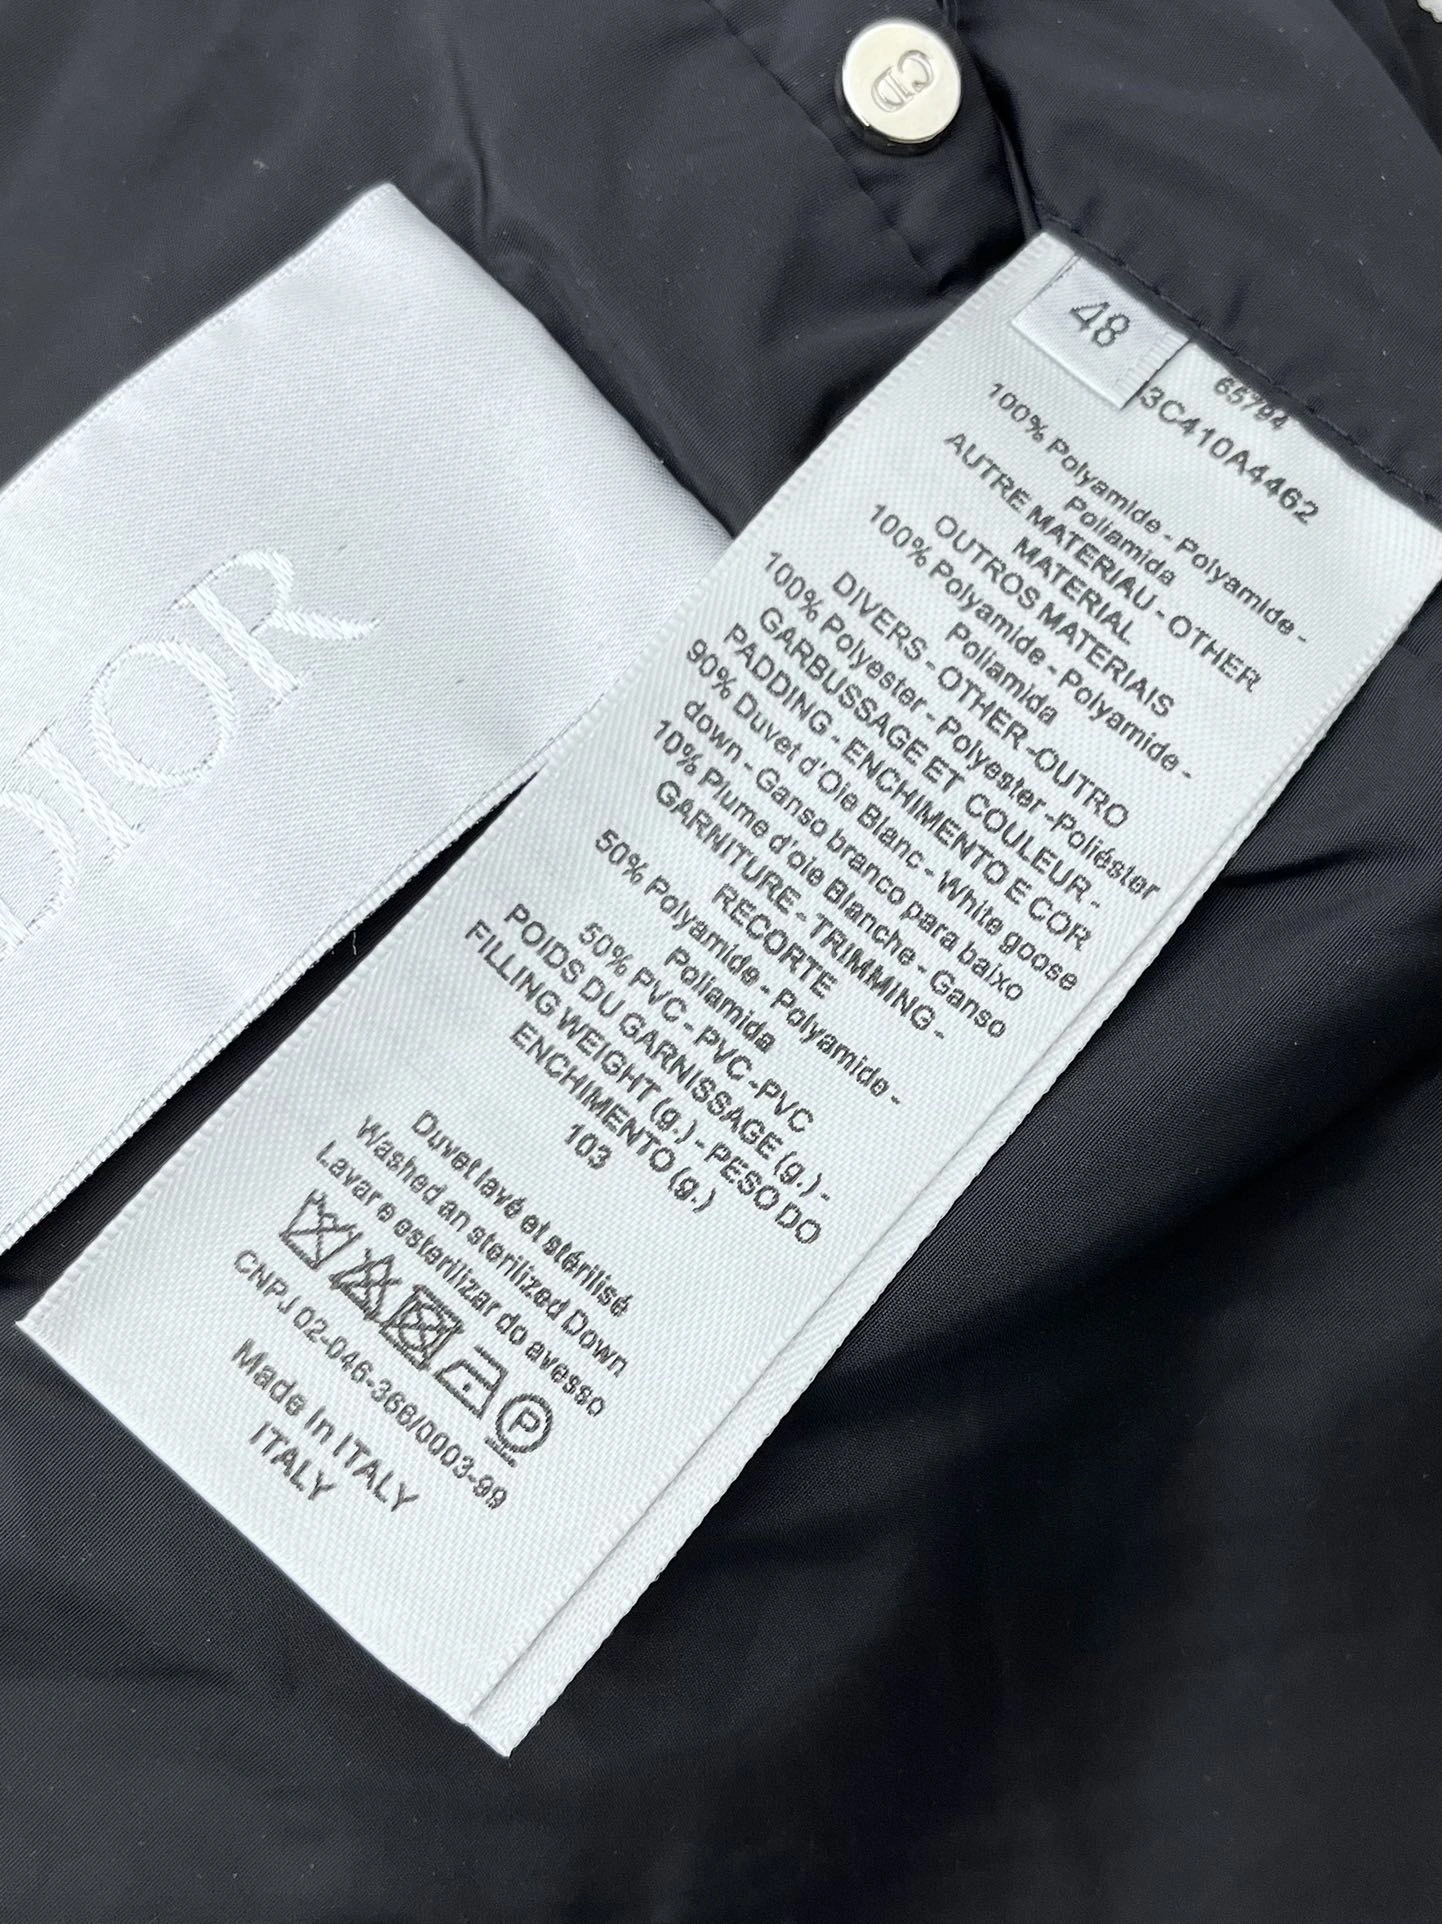 CD
DIOR
48
65794
3C410A4462
100% Polyamide - Polyamide -
Poliamida
AUTRE MATERIAU - OTHER
MATERIAL
OUTROS MATERIAIS
100% Polyamide - Polyamide -
Poliamida
DIVERS - OTHER -OUTRO
100% Polyester - Polyester -Poliéster
GARBUSSAGE ET COULEUR -
PADDING - ENCHIMENTO E COR
90% Duvet d'Oie Blanc - White goose
down - Ganso branco para baixo
10% Plume d'oie Blanche - Ganso
GARNITURE - TRIMMING -
RECORTE
50% Polyamide - Polyamide -
Poliamida
50% PVC - PVC -PVC
POIDS DU GARNISSAGE (g.) -
FILLING WEIGHT (g.) - PESO DO
ENCHIMENTO (g.)
103
Duvet lavé et stérilisé
Washed an sterilized Down
Lavar e esterilizar do avesso
P
CNPJ 02-046-366/0003-99
Made In ITALY
ITALY